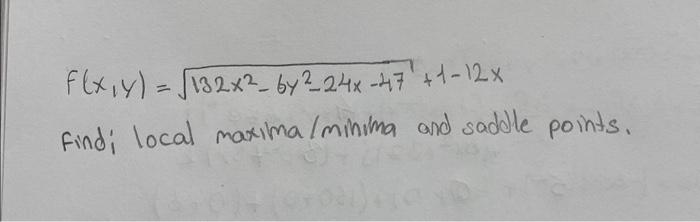 F(x,y) = √(132x² - 6y² - 24x - 47) + 1 - 12x
Find; local maxima/minima and saddle points.